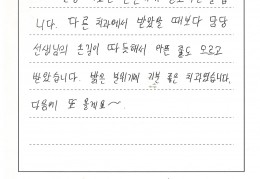 니다. 다른 치과에서 받았을 때보다 담당
선생님의 손길이 따듯해서 아픈 줄도 모르고
받았습니다. 밝은 분위기에 기분 좋은 치과였습니다.
다음에 또 올게요~.